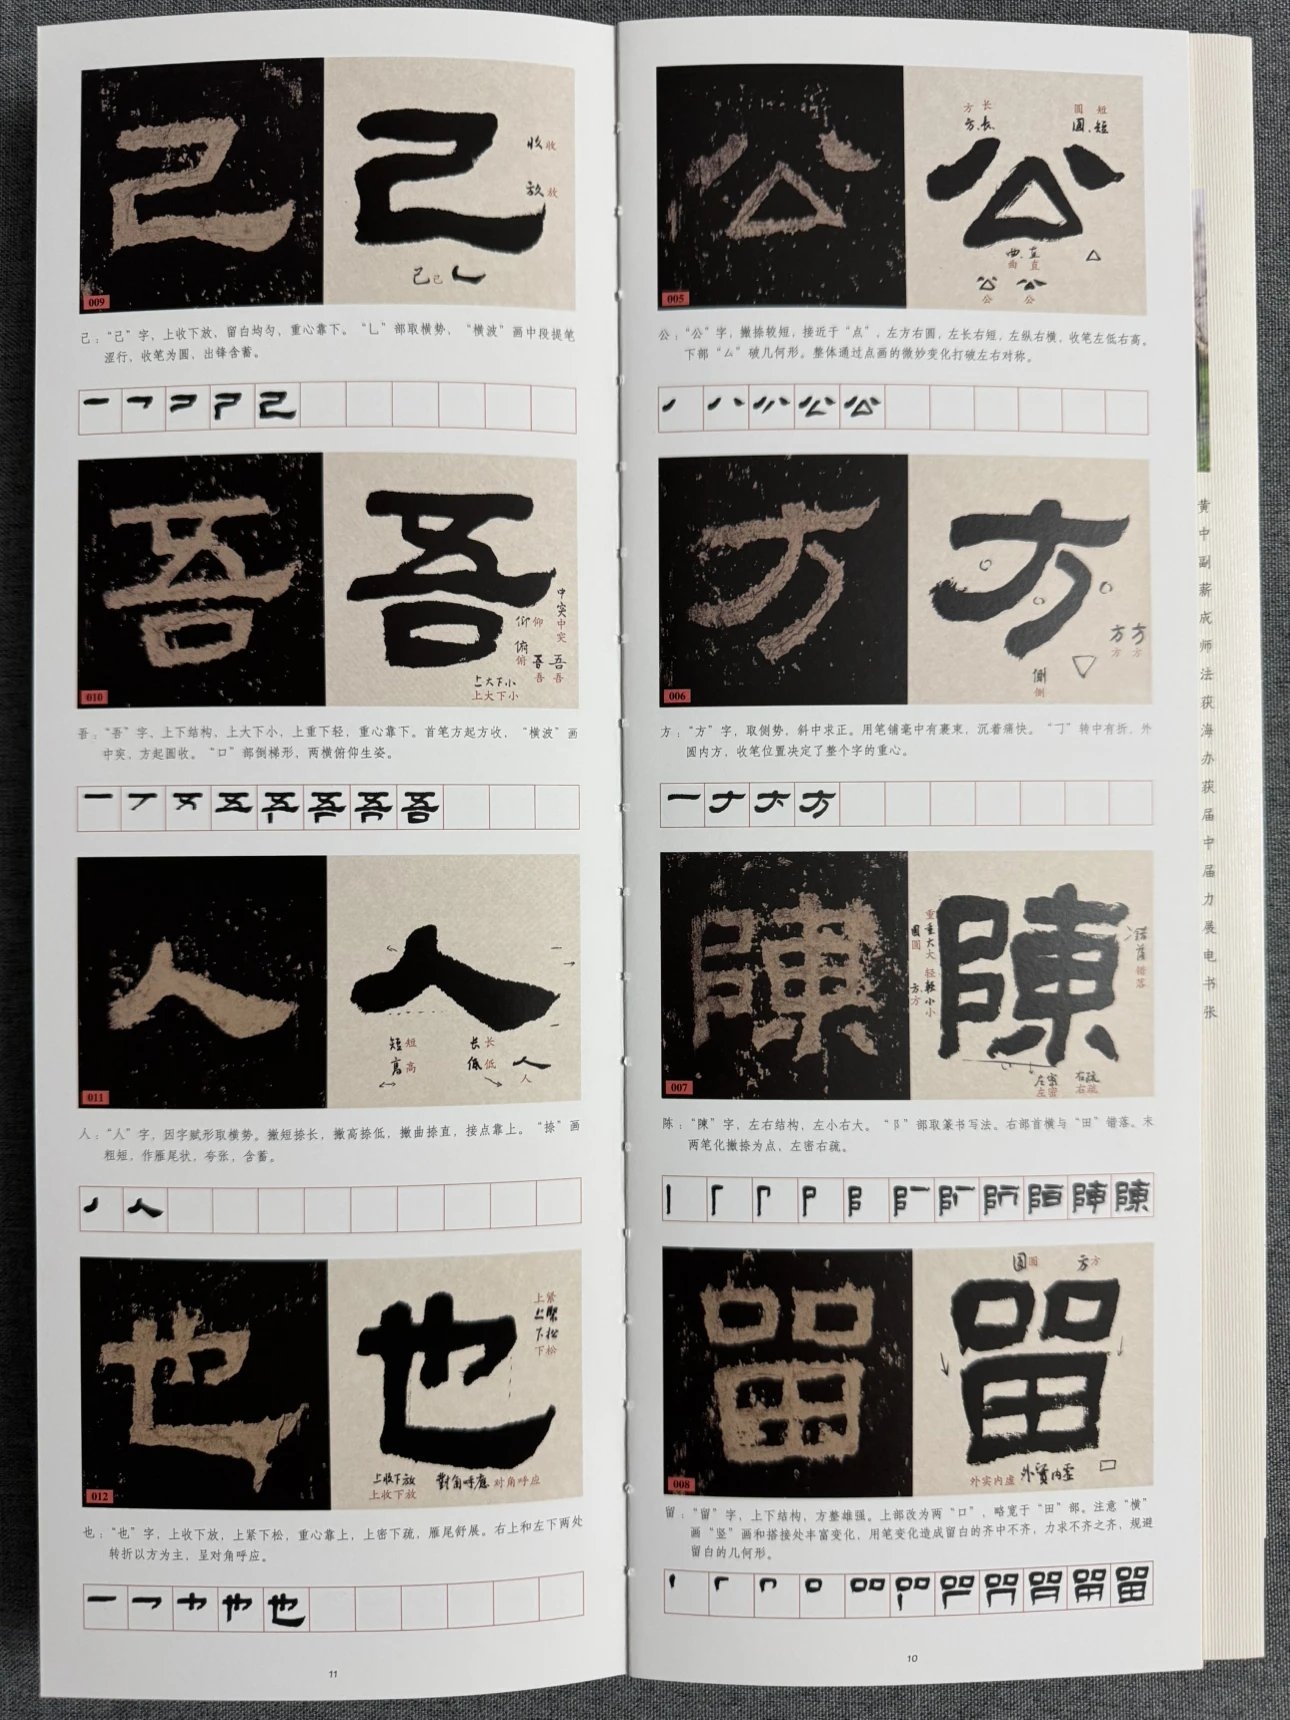 公
方 长
方、长
圆 短
圆、短
曲、直
曲 直
公 公
公 公
005
公：“公”字，撇捺较短，接近于“点”，左方右圆，左长右短，左纵右横，收笔左低右高。
下部“厶”破几何形。整体通过点画的微妙变化打破左右对称。
公
方
方 方
方 方
侧
侧
006
方：“方”字，取侧势，斜中求正。用笔铺毫中有裹束，沉着痛快。“丁”转中有折，外
圆内方，收笔位置决定了整个字的重心。
方
陳
重大
重大
圆
圆
轻小
轻小
方
方
错落
错落
左密 右疏
左密 右疏
007
陈：“陳”字，左右结构，左小右大。“阝”部取篆书写法。右部首横与“田”错落。末
两笔化撇捺为点，左密右疏。
陳
留
圆 圆
方 方
外实内虚 外實内虚
008
留：“留”字，上下结构，方整雄强。上部改为两“口”，略宽于“田”部。注意“横”
画“竖”画和搭接处丰富变化，用笔变化造成留白的齐中不齐，力求不齐之齐，规避
留白的几何形。
留
10
己
收 收
放 放
己 己
009
己：“己”字，上收下放，留白均匀，重心靠下。“乚”部取横势，“横波”画中段提笔
涩行，收笔为圆，出锋含蓄。
己
吾
中突
中突
仰 仰
俯
俯
吾 吾
吾 吾
上大下小
上大下小
010
吾：“吾”字，上下结构，上大下小，上重下轻，重心靠下。首笔方起方收，“横波”画
中突，方起圆收。“口”部倒梯形，两横俯仰生姿。
吾
人
短 短
高 高
长 长
低 低
人
人
011
人：“人”字，因字赋形取横势。撇短捺长，撇高捺低，撇曲捺直，接点靠上。“捺”画
粗短，作雁尾状，夸张，含蓄。
人
也
上紧
上緊
下松
下松
上收下放
上收下放
對角呼應 对角呼应
012
也：“也”字，上收下放，上紧下松，重心靠上，上密下疏，雁尾舒展。右上和左下两处
转折以方为主，呈对角呼应。
也
11
黄
中
副
薪
成
师
法
获
海
办
获
届
中
届
力
展
电
书
张